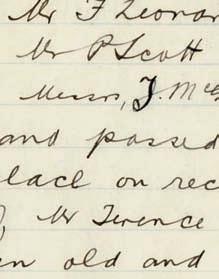 Mr F Leonar
Mr P Scott
Messrs, J. Mc
and passed
lace on rec
Mr Terence
en old and